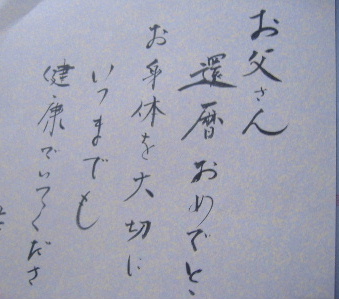 お父さん
還暦おめでと
お身体を大切に
いつまでも
健康でいてくださ